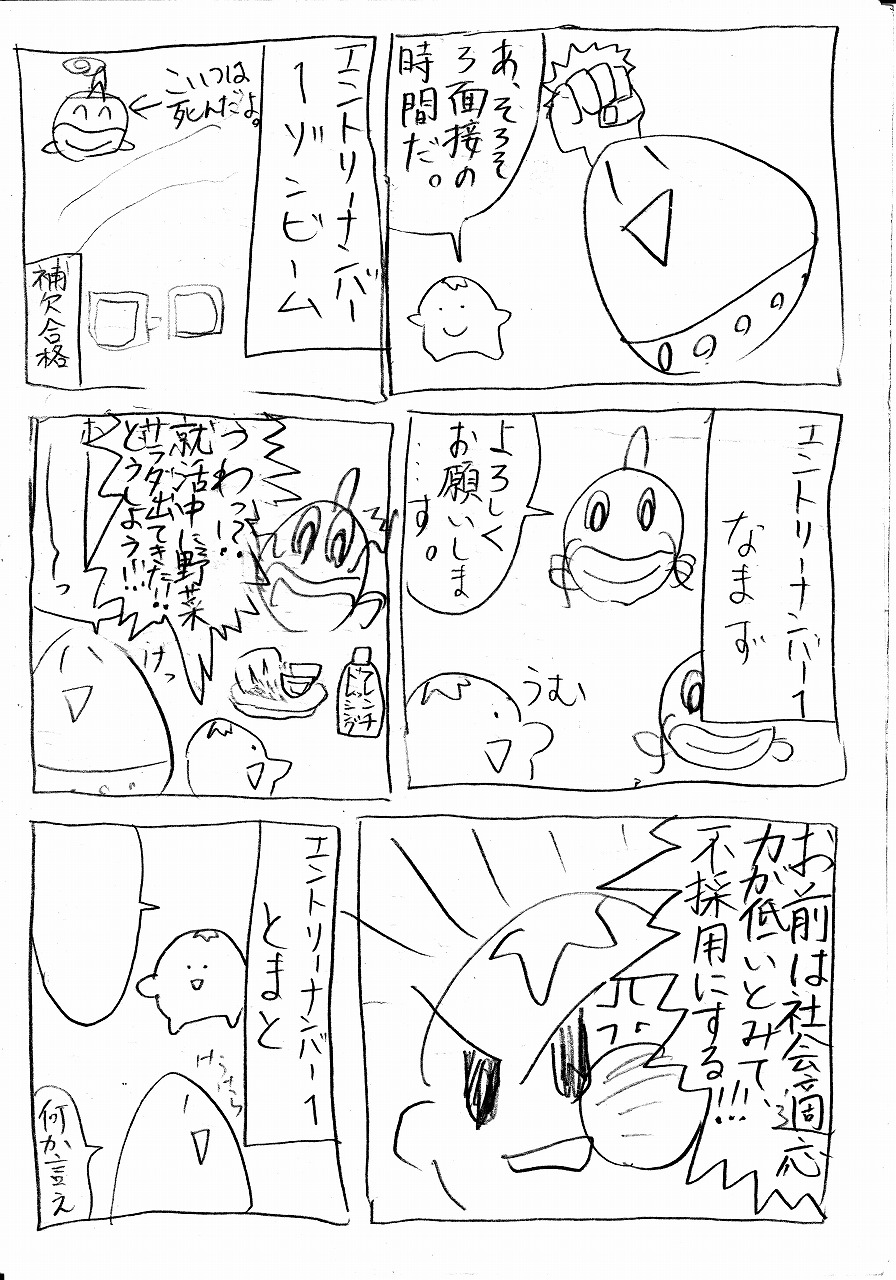 あ、そろそ
ろ面接の
時間だ。
エントリーナンバー
1 ゾンビーム
こいつは
死んだよ。
補欠合格
エントリーナンバー1
なまず
よろしく
お願いしま
……す。
うむ
うわっ?!
就活中に野菜
サラダ出てきた!!
どうしよう!!!
フレンチ
ドレッシング
けっ
お前は社会適応
力が低いとみて、
不採用にする!!!
エントリーナンバー1
とまと
けらけら
何か言え